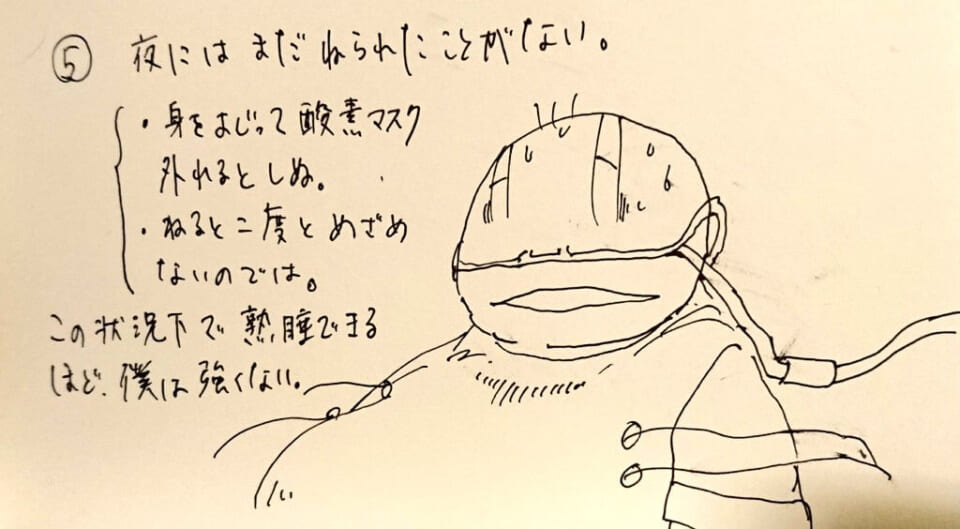 ⑤ 夜にはまだねられたことがない。
・身をよじって酸素マスク
外れるとしぬ。
・ねると二度とめざめ
ないのでは。
この状況下で熟睡できる
ほど、僕は強くない。